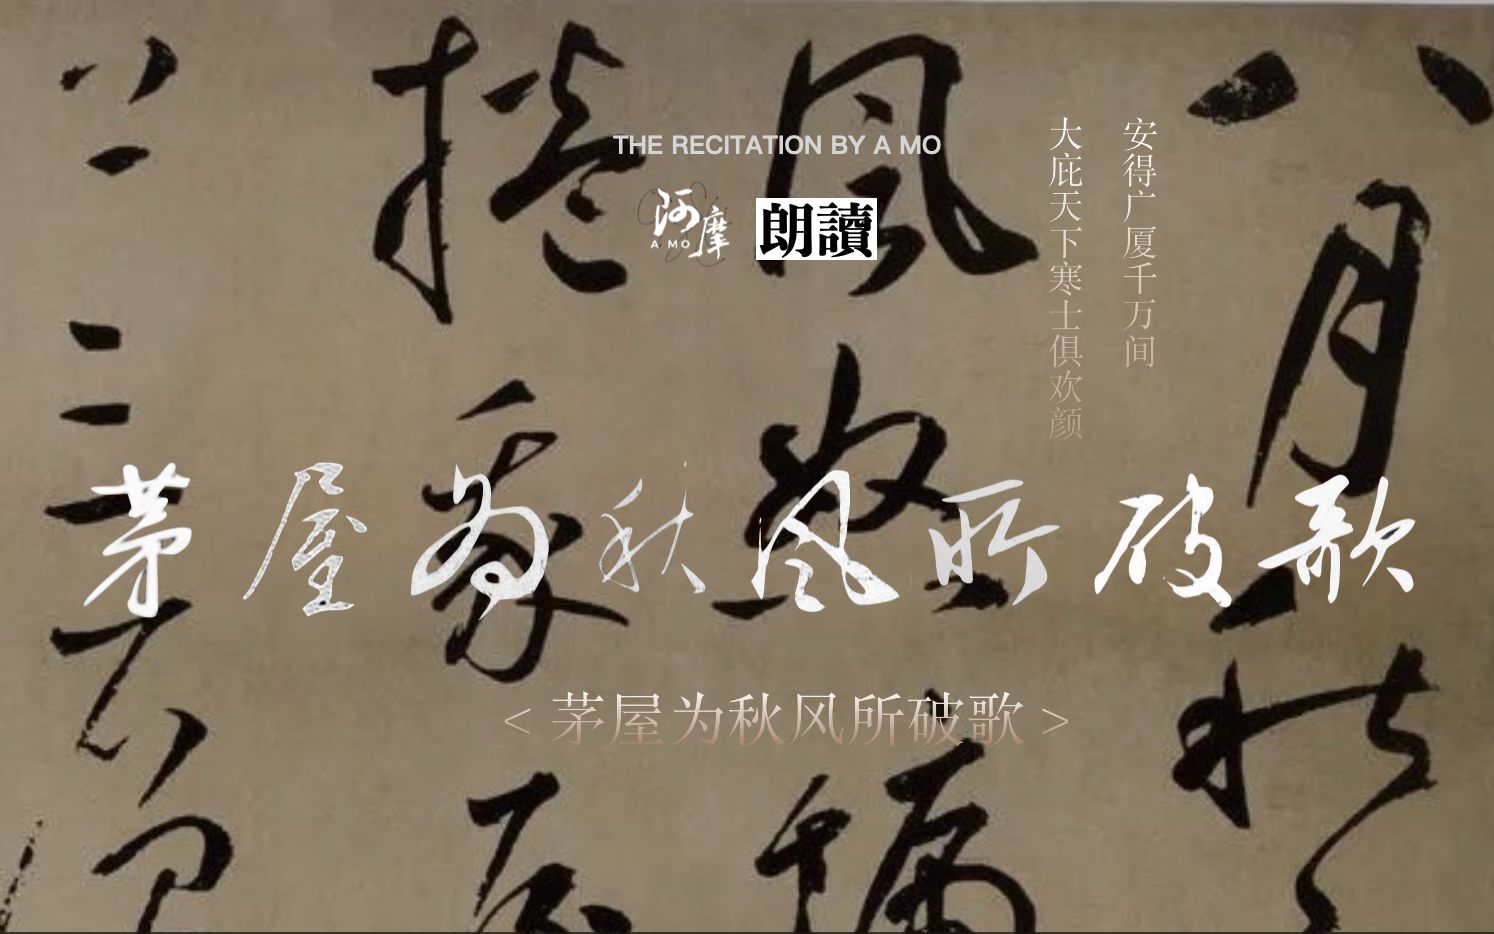 THE RECITATION BY A MO
阿摩
A MO
朗讀
安得广厦千万间
大庇天下寒士俱欢颜
茅屋为秋风所破歌
< 茅屋为秋风所破歌 >
八月秋
風怒號
捲我屋